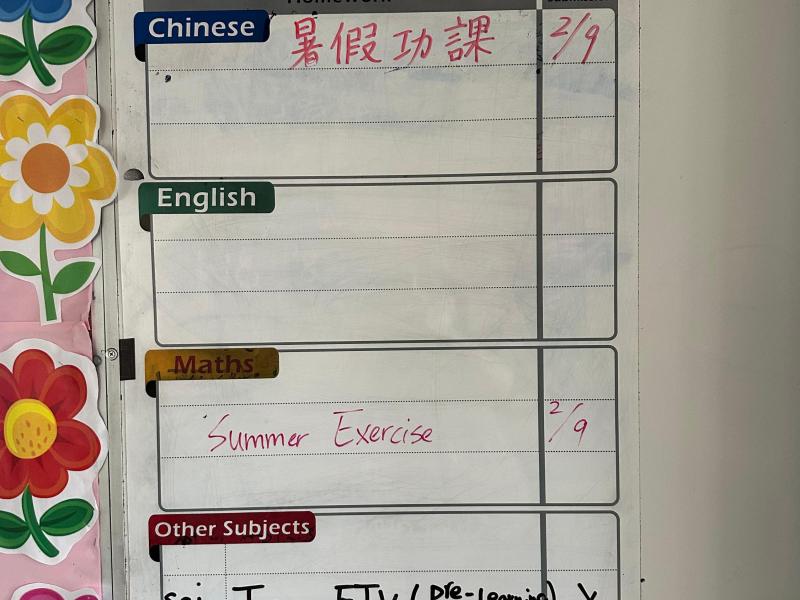 Homework
Chinese
暑假功課 2/9
English
Maths
Summer Exercise 2/9
Other Subjects
(pre-learning)